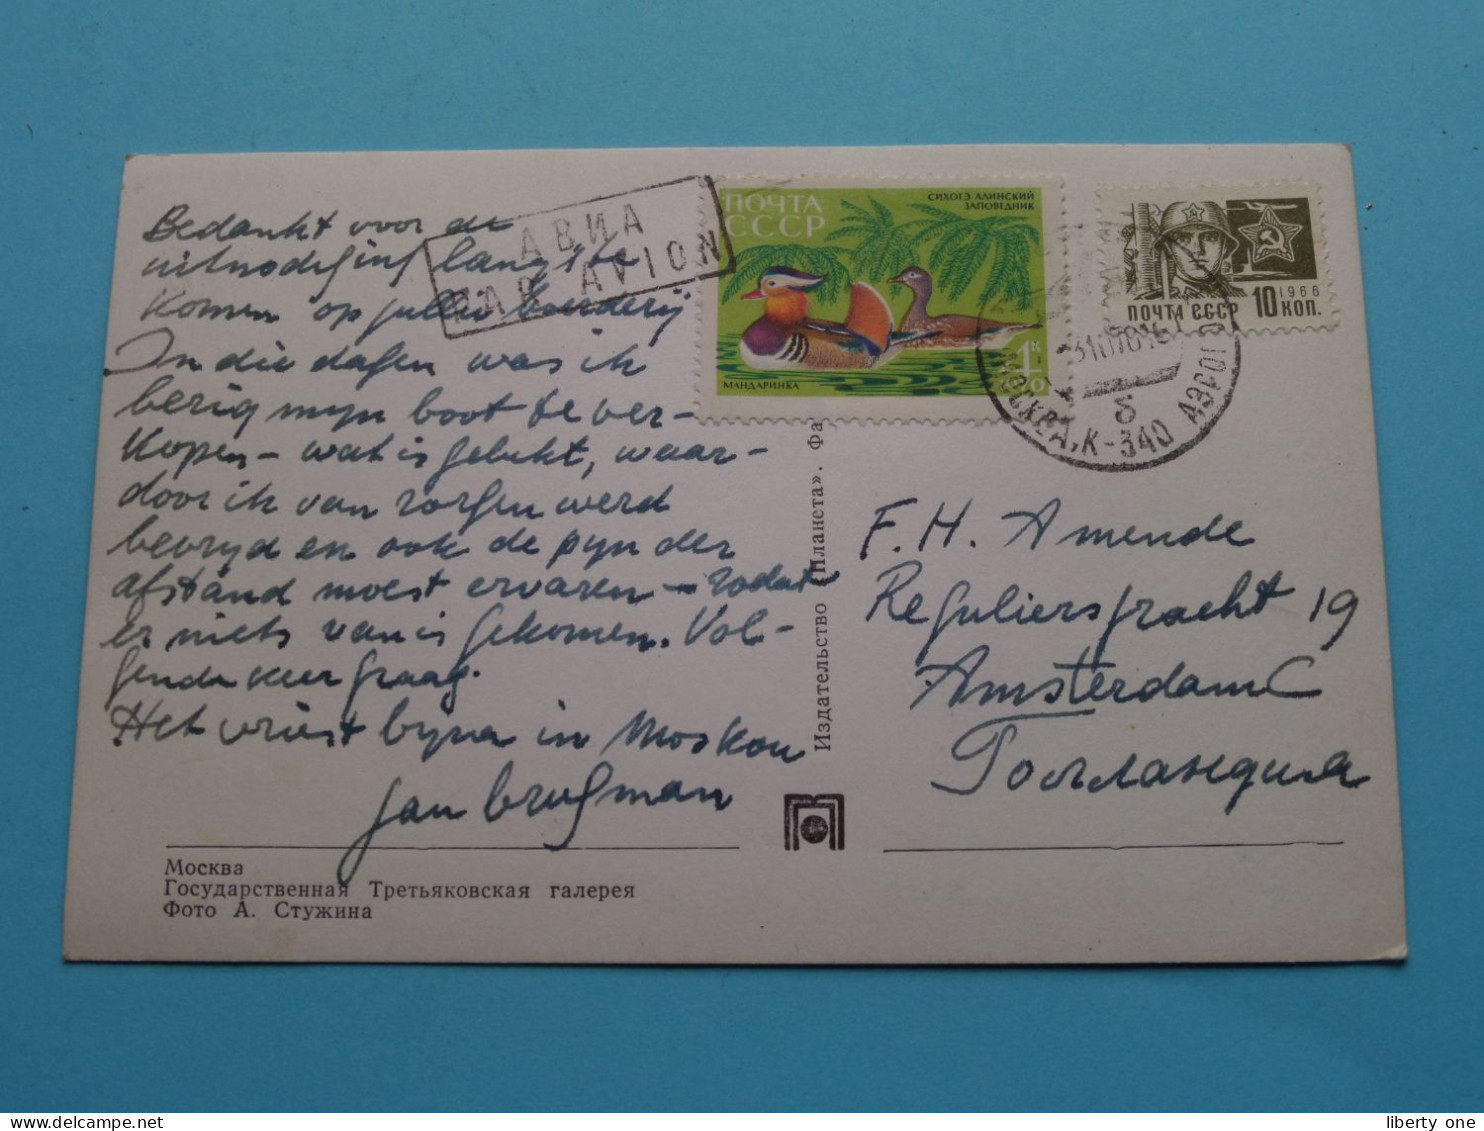 Bedankt voor de
uitnodiging langs te
komen op jullie boerderij
In die dagen was ik
bezig mijn boot te ver-
kopen – wat is gelukt, waar-
door ik van zorgen werd
bevrijd en ook de pijn der
afstand moest ervaren – zodat
er niets van is gekomen. Vol-
gende keer graag.
Het vriest bijna in Moskou
Jan Brugman
АВИА
PAR AVION
ПОЧТА
СССР
СИХОТЭ АЛИНСКИЙ
ЗАПОВЕДНИК
МАНДАРИНКА
4 к
1966
ПОЧТА СССР 10 КОП.
МОСКВА, К-340
б
Издательство «Планета». Фа
F. H. Amende
Reguliersgracht 19
Amsterdam C
Голландия
Москва
Государственная Третьяковская галерея
Фото А. Стужина
liberty one